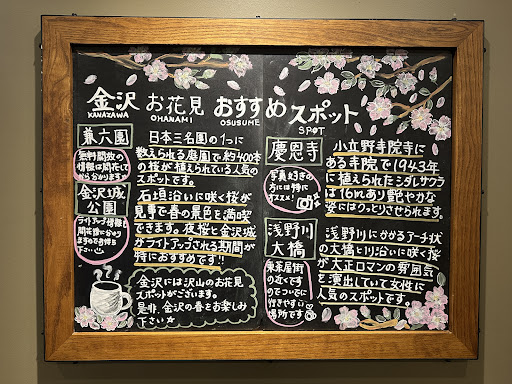 金沢 お花見 おすすめ スポット
KANAZAWA OHANAMI OSUSUME SPOT
兼六園
無料開放の
情報は開花して
から分かります
日本三名園の1つに
数えられる庭園で約400本
の桜が植えられている人気の
スポットです。
金沢城
公園
ライトアップ情報も
開花後に分かり
ますのでお待ち
下さい♡
石垣沿いに咲く桜が
見事で春の景色を満喫
できます。夜桜と金沢城
がライトアップされる期間が
特におすすめです!!
金沢には沢山のお花見
スポットがございます。
是非、金沢の春をお楽しみ
下さい☆
慶恩寺
写真好きの
方には特に
オススメ!
小立野寺院寺に
ある寺院で1943年
に植えられたシダレザクラ
は16mあり艶やかな
姿にはうっとりさせられます。
浅野川
大橋
東茶屋街
の近くです
のでついでに
行きやすい
場所です
浅野川にかかるアーチ状
の大橋と川沿いに咲く桜
が大正ロマンの雰囲気
を演出していて女性に
人気のスポットです。